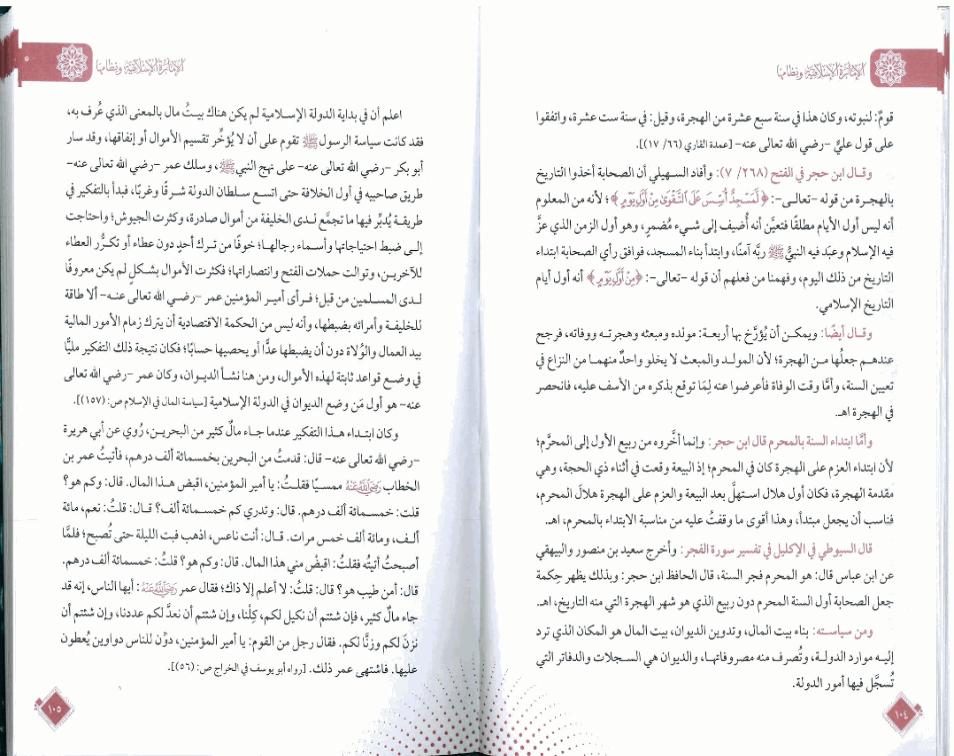 الإمارة الإسلامية ونظامها
قومٌ: لنبوته، وكان هذا في سنة سبع عشرة من الهجرة، وقيل: في سنة ست عشرة، واتفقوا
على قول عليٍّ -رضي الله تعالى عنه- [عمدة القاري (٦٦/ ١٧)].
وقـال ابن حجر في الفتح (٢٦٨/ ٧): وأفاد السهيلي أن الصحابة أخذوا التاريخ
بالهجرة من قوله -تعالـى-: ﴿لَمَسْجِدٌ أُسِّسَ عَلَى التَّقْوَىٰ مِنْ أَوَّلِ يَوْمٍ﴾؛ لأنه من المعلوم
أنه ليس أول الأيام مطلقًا فتعيَّن أنه أُضيف إلى شيء مُضمرٍ، وهو أول الزمن الذي عزَّ
فيه الإسلام وعبَد فيه النبيُّ ﷺ ربَّه آمنًا، وابتدأ بناء المسجد، فوافق رأي الصحابة ابتداء
التاريخ من ذلك اليوم، وفهمنا من فعلهم أن قوله -تعالى-: ﴿مِنْ أَوَّلِ يَوْمٍ﴾ أنه أول أيام
التاريخ الإسلامي.
وقـال أيضًا: ويمكـن أن يُؤرَّخ بها أربعـة: مولده ومبعثه وهجرتـه ووفاته، فرجح
عندهـم جعلُها مـن الهجرة؛ لأن المولـد والمبعث لا يخلو واحدٌ منهمـا من النزاع في
تعيين السنة، وأمَّا وقت الوفاة فأعرضوا عنه لِمَا توقع بذكره من الأسف عليه، فانحصر
في الهجرة اهـ.
وأمَّا ابتداء السنة بالمحرم قال ابن حجر: وإنما أخَّروه من ربيع الأول إلى المحرَّم؛
لأن ابتداء العزم على الهجرة كان في المحرم؛ إذ البيعة وقعت في أثناء ذي الحجة، وهي
مقدمة الهجرة، فكان أول هلال استهلَّ بعد البيعة والعزم على الهجرة هلالَ المحرم،
فناسب أن يجعل مبتدأ، وهذا أقوى ما وقفتُ عليه من مناسبة الابتداء بالمحرم، اهـ.
قال السيوطي في الإكليل في تفسير سورة الفجر: وأخرج سعيد بن منصور والبيهقي
عن ابن عباس قال: هو المحرم فجر السنة، قال الحافظ ابن حجر: وبذلك يظهر حِكمة
جعل الصحابة أول السنة المحرم دون ربيع الذي هو شهر الهجرة التي منه التاريخ، اهـ.
ومن سياسته: بناء بيت المال، وتدوين الديوان، بيت المال هو المكان الذي ترد
إليـه موارد الدولـة، وتُصرف منه مصروفاتـها، والديوان هي السجلات والدفاتر التي
تُسجَّل فيها أمور الدولة.
١٠٤
الإمارة الإسلامية ونظامها
اعلم أن في بداية الدولة الإسـلامية لم يكن هناك بيـتُ مال بالمعنى الذي عُرف به،
فقد كانت سياسة الرسول ﷺ تقوم على أن لا يُؤخِّر تقسيم الأموال أو إنفاقها، وقد سار
أبو بكر -رضي الله تعالى عنه- على نهج النبي ﷺ، وسلك عمر -رضي الله تعالى عنه-
طريق صاحبيه في أول الخلافة حتى اتسع سلطان الدولة شرقًا وغربًا، فبدأ بالتفكير في
طريقـة يُدبِّر فيها ما تجمَّع لـدى الخليفة من أموال صادرة، وكثرت الجيوش؛ واحتاجت
إلـى ضبط احتياجاتها وأسماء رجالها؛ خوفًا من تـرك أحدٍ دون عطاء أو تكـرُّر العطاء
للآخريـن، وتوالت حملات الفتح وانتصاراتها؛ فكثرت الأموال بشكلٍ لم يكن معروفًا
لـدى المسلمين من قبل؛ فـرأى أميـر المؤمنين عمر -رضي الله تعالى عنه- ألا طاقة
للخليفـة وأمرائه بضبطها، وأنه ليس من الحكمة الاقتصادية أن يترك زمام الأمور المالية
بيد العمال والوُلاة دون أن يضبطها عدًّا أو يحصيها حسابًا؛ فكان نتيجة ذلك التفكير مليًّا
في وضـع قواعد ثابتة لهذه الأموال، ومن هنا نشـأ الديوان، وكان عمر -رضي الله تعالى
عنه- هو أول مَن وضع الديوان في الدولة الإسلامية [سياسة المال في الإسلام ص: (١٥٧)].
وكان ابتـداء هـذا التفكير عندما جـاء مالٌ كثير من البحريـن، رُوي عن أبي هريرة
-رضي الله تعالى عنه- قال: قدمتُ من البحرين بخمسمائة ألف درهم، فأتيتُ عمر بن
الخطاب رَضِيَ اللَّهُ عَنْهُ ممسـيًا فقلـتُ: يا أمير المؤمنين، اقبض هـذا المال. قال: وكم هو؟
قلت: خمسـمائة ألف درهم. قال: وتدري كم خمسـمائة ألف؟ قـال: قلتُ: نعم، مائة
ألـف، ومائة ألف خمس مرات. قـال: أنت ناعس، اذهب فبت الليلة حتى تُصبح؛ فلمَّا
أصبحتُ أتيتُه فقلتُ: اقبضْ مني هذا المال. قال: وكم هو؟ قلتُ: خمسمائة ألف درهم.
قال: أمن طيب هو؟ قال: قلتُ: لا أعلم إلا ذاك؛ فقال عمر رَضِيَ اللَّهُ عَنْهُ: أيها الناس، إنه قد
جاء مالٌ كثير، فإن شئتم أن نكيل لكم، كِلْنا، وإن شئتم أن نعدَّ لكم عددنا، وإن شئتم أن
نزنَ لكم وزنَّا لكم. فقال رجل من القوم: يا أمير المؤمنين، دوِّن للناس دواوين يُعطون
عليها. فاشتهى عمر ذلك. [رواه أبو يوسف في الخراج ص: (٥٦)].
١٠٥